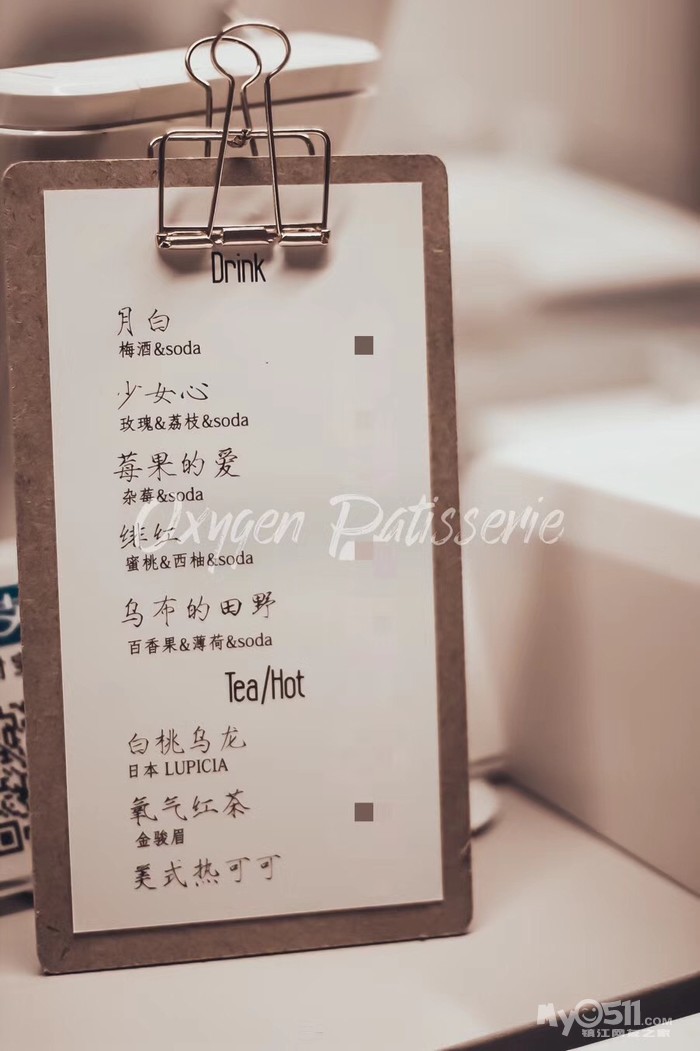 Drink
月白
梅酒&soda
少女心
玫瑰&荔枝&soda
莓果的爱
杂莓&soda
绯红
Oxygen Patisserie
蜜桃&西柚&soda
乌布的田野
百香果&薄荷&soda
Tea/Hot
白桃乌龙
日本 LUPICIA
氧气红茶
金骏眉
美式热可可
My0511.COM
镇江网友之家